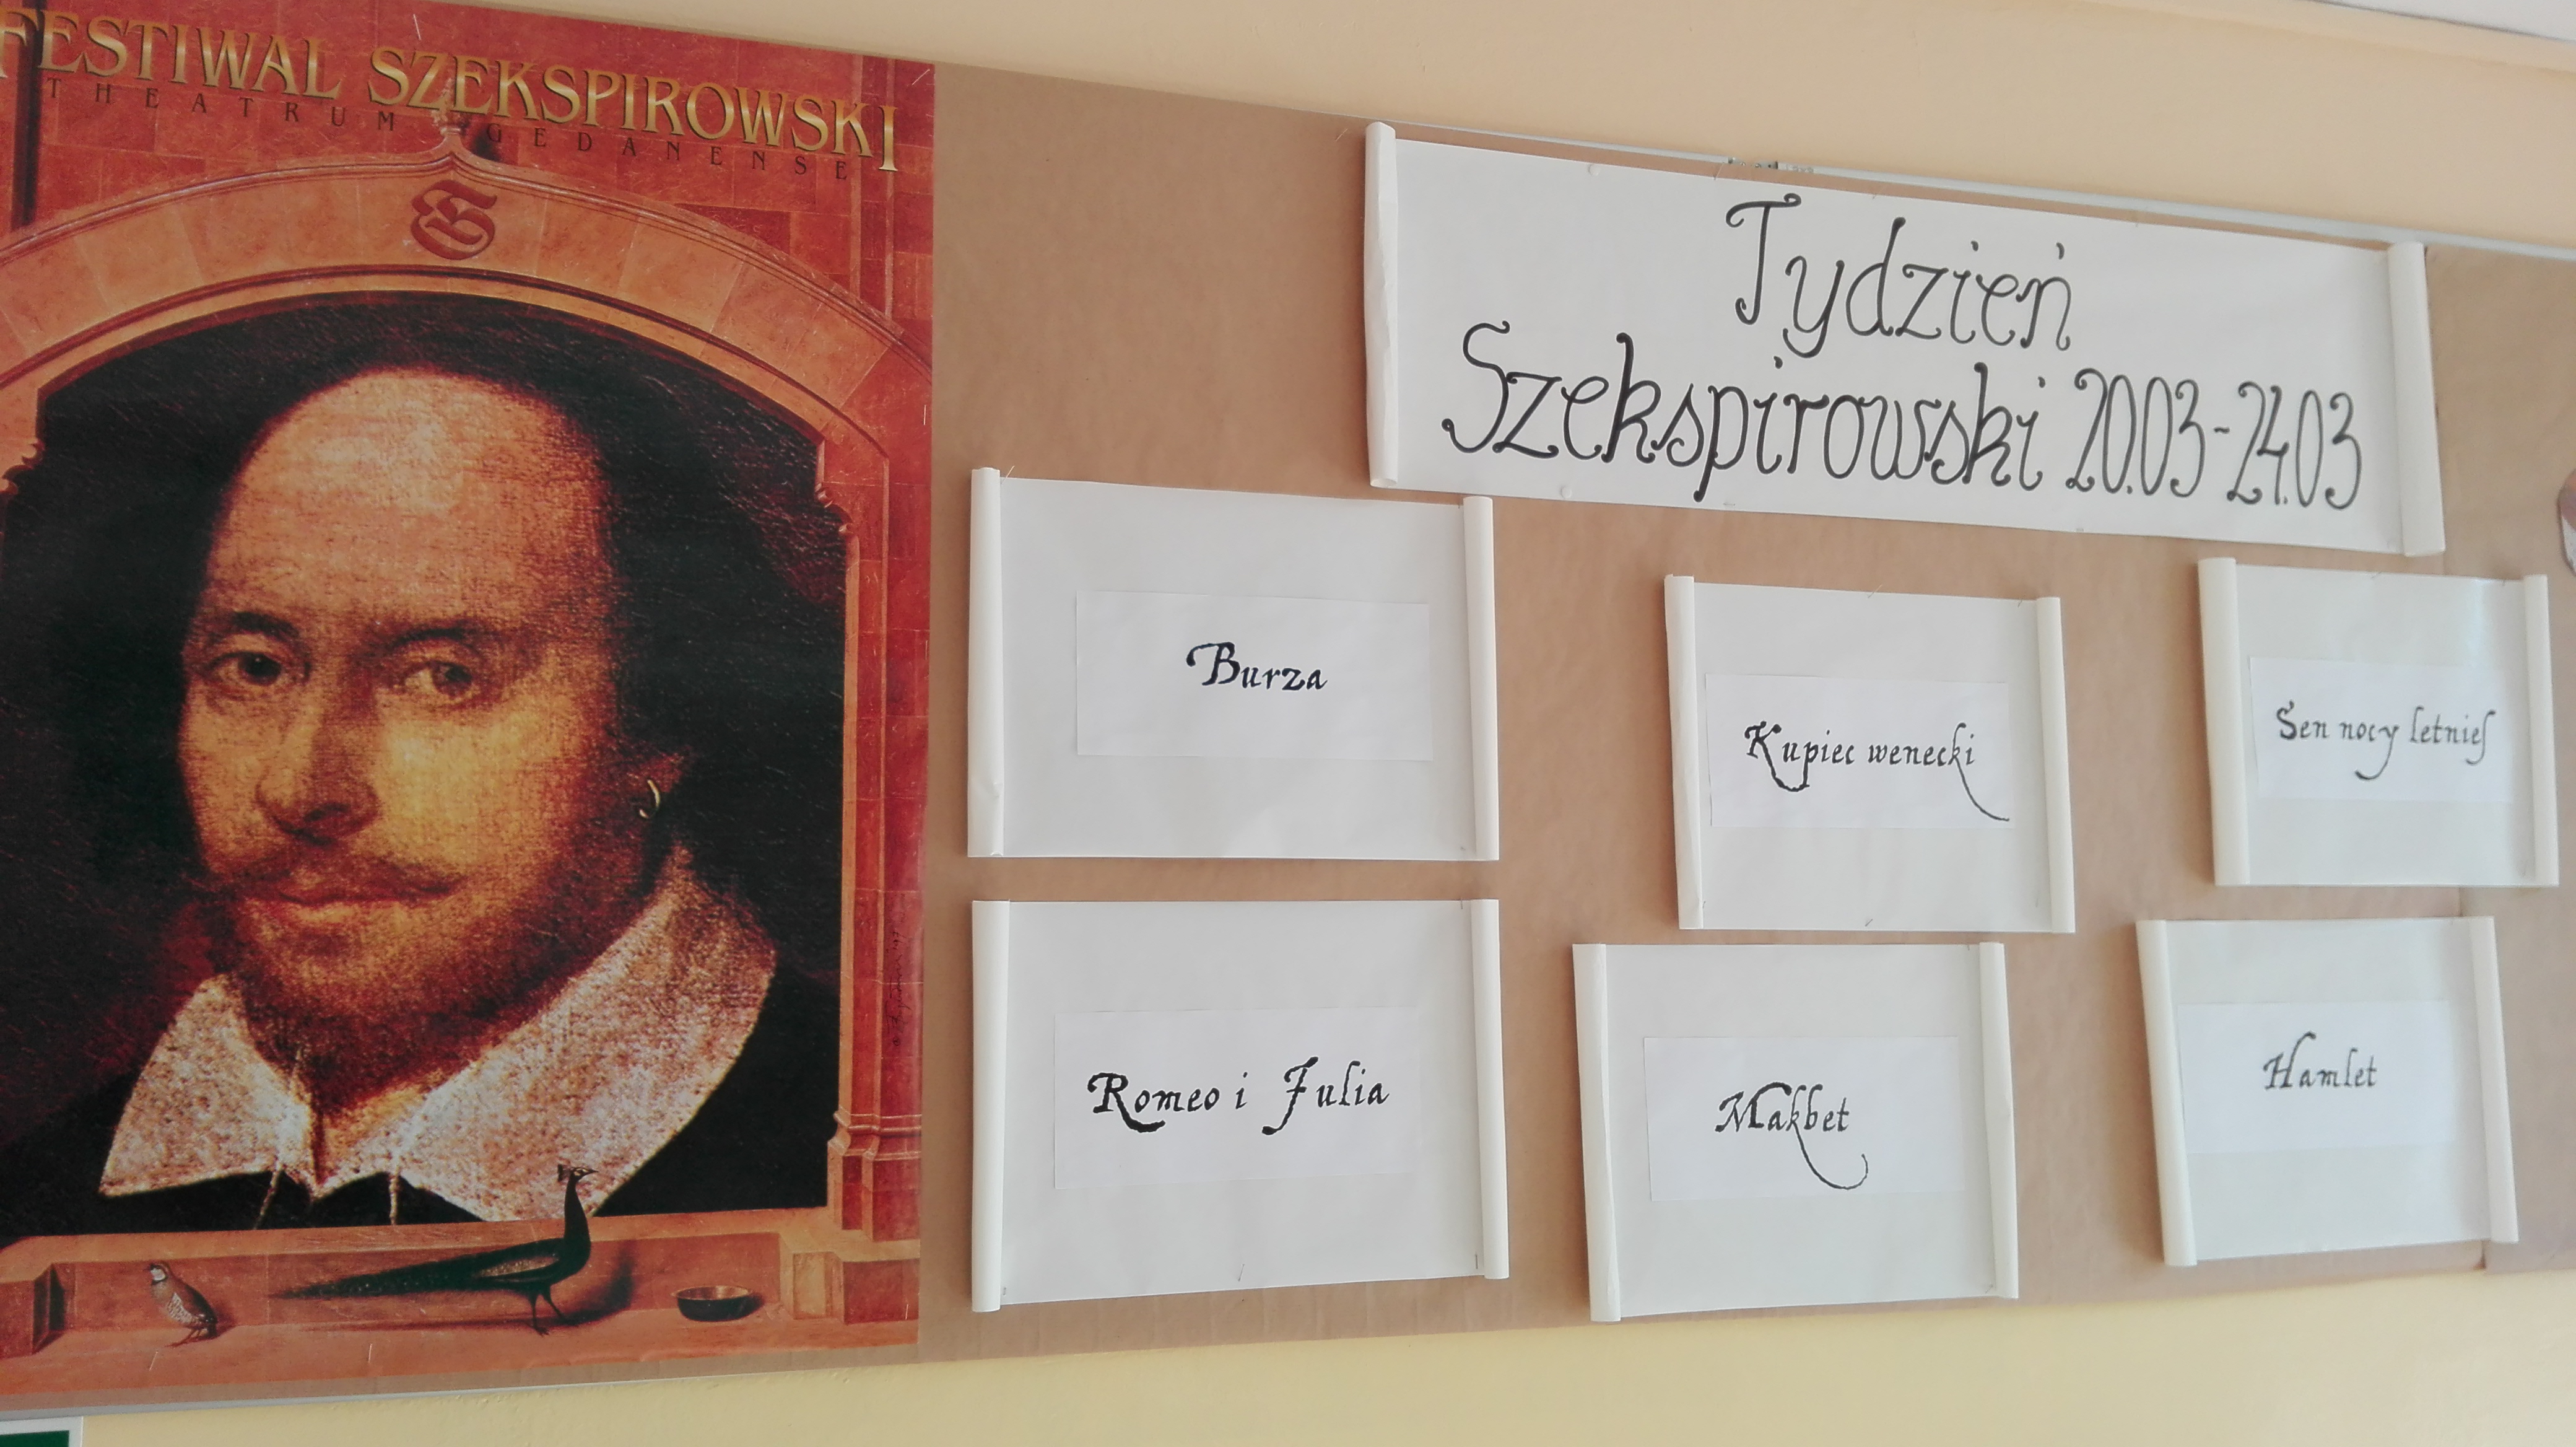 FESTIWAL SZEKSPIROWSKI
THEATRUM GEDANENSE
S
Tydzień
Szekspirowski 20.03-24.03
Burza
Kupiec wenecki
Sen nocy letniej
Romeo i Julia
Makbet
Hamlet